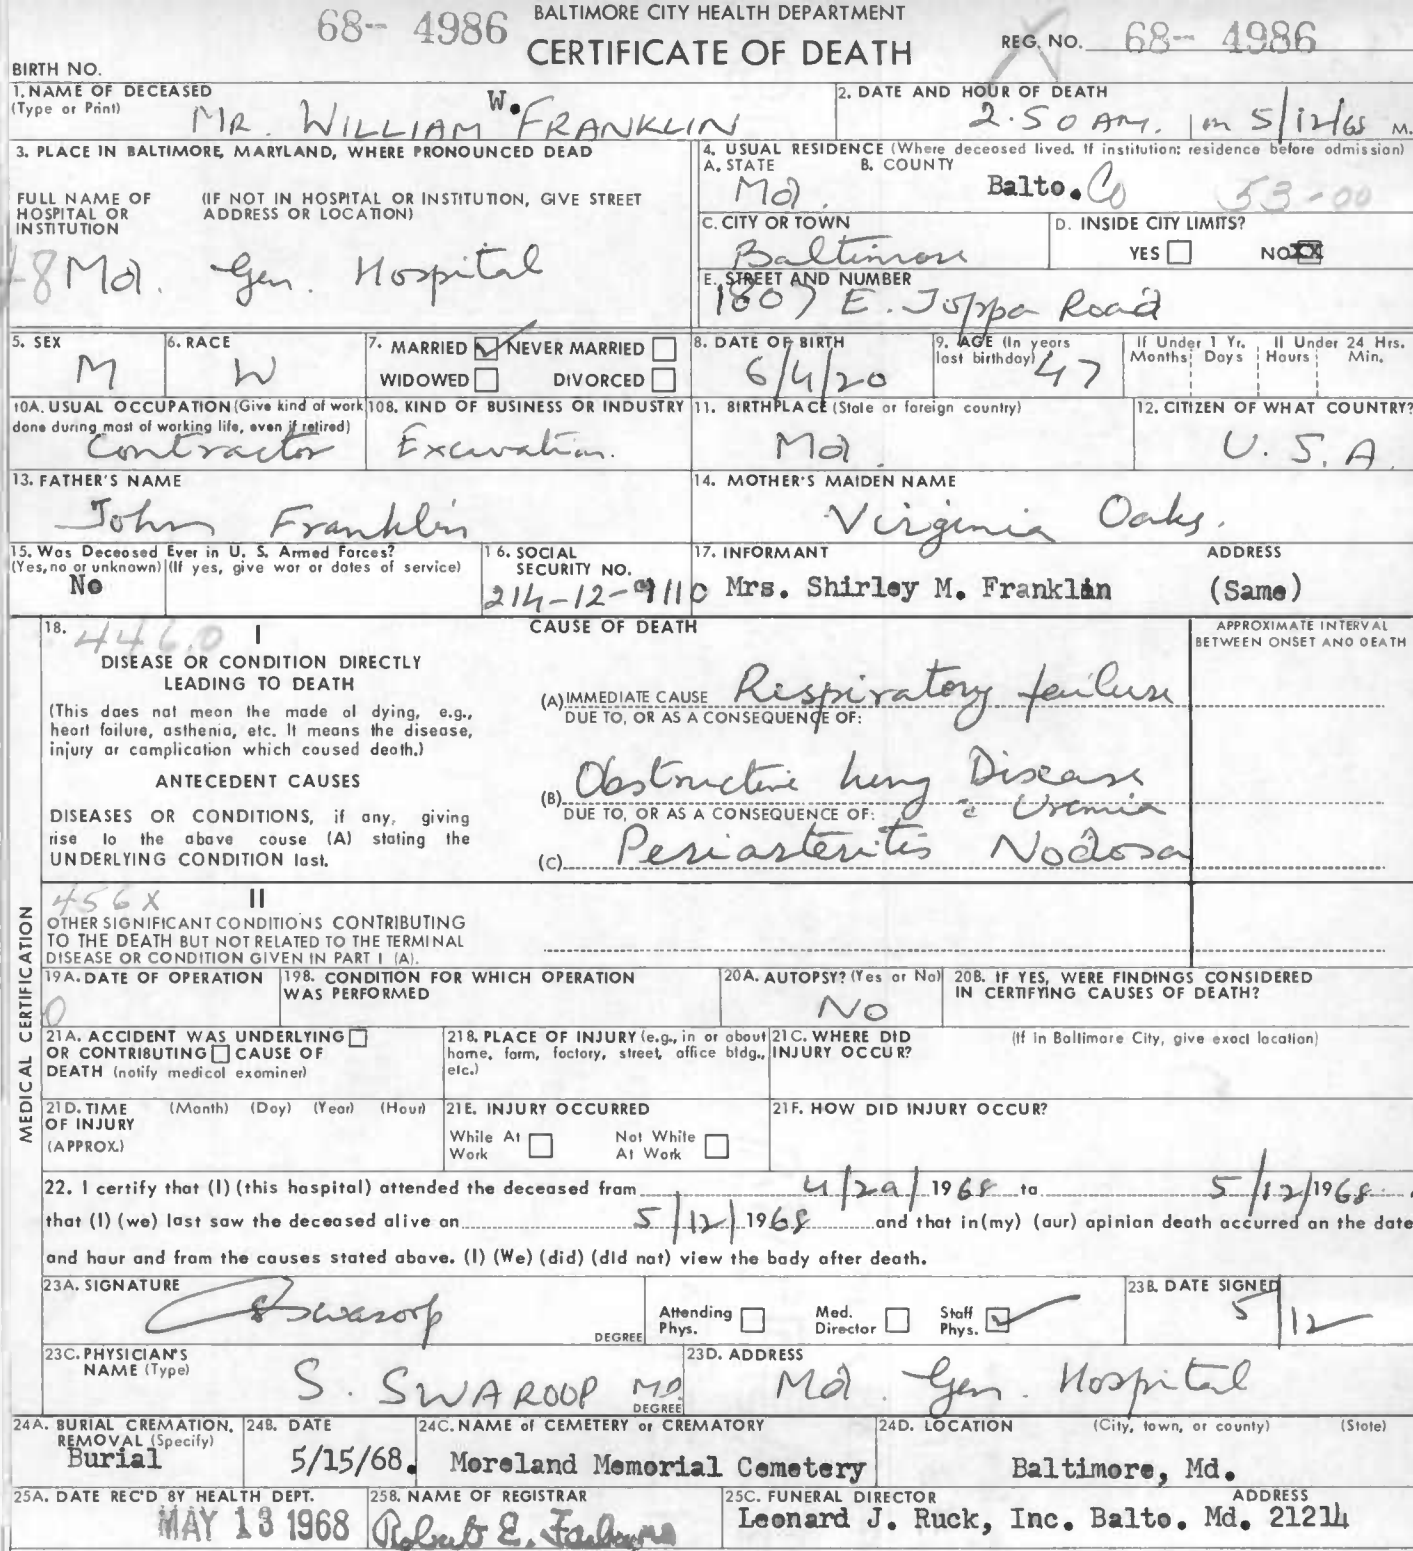 68-- 4986 BALTIMORE CITY HEALTH DEPARTMENT
CERTIFICATE OF DEATH REG. NO. 68-- 4986
BIRTH NO.
1. NAME OF DECEASED
(Type or Print) MR. WILLIAM W. FRANKLIN
2. DATE AND HOUR OF DEATH
2.50 AM. on 5/12/68 M.
3. PLACE IN BALTIMORE, MARYLAND, WHERE PRONOUNCED DEAD
FULL NAME OF HOSPITAL OR INSTITUTION
(IF NOT IN HOSPITAL OR INSTITUTION, GIVE STREET ADDRESS OR LOCATION)
48 Md. Gen. Hospital
4. USUAL RESIDENCE (Where deceased lived. If institution: residence before admission)
A. STATE B. COUNTY
Md. Balto. Co 53-00
C. CITY OR TOWN
Baltimore
D. INSIDE CITY LIMITS?
YES NO XX
E. STREET AND NUMBER
1807 E. Joppa Road
5. SEX
M
6. RACE
W
7. MARRIED NEVER MARRIED
WIDOWED DIVORCED
8. DATE OF BIRTH
6/4/20
9. AGE (In years last birthday)
47
If Under 1 Yr. Months Days
If Under 24 Hrs. Hours Min.
10A. USUAL OCCUPATION (Give kind of work done during most of working life, even if retired)
Contractor
10B. KIND OF BUSINESS OR INDUSTRY
Excavation.
11. BIRTHPLACE (State or foreign country)
Md.
12. CITIZEN OF WHAT COUNTRY?
U. S. A.
13. FATHER'S NAME
John Franklin
14. MOTHER'S MAIDEN NAME
Virginia Oaks.
15. Was Deceased Ever in U. S. Armed Forces?
(Yes, no or unknown) (If yes, give war or dates of service)
No
16. SOCIAL SECURITY NO.
214-12-9110
17. INFORMANT ADDRESS
Mrs. Shirley M. Franklin (Same)
MEDICAL CERTIFICATION
18. 446.0 I
DISEASE OR CONDITION DIRECTLY
LEADING TO DEATH
(This does not mean the mode of dying, e.g.,
heart failure, asthenia, etc. It means the disease,
injury or complication which caused death.)
ANTECEDENT CAUSES
DISEASES OR CONDITIONS, if any, giving
rise to the above cause (A) stating the
UNDERLYING CONDITION last.
CAUSE OF DEATH
APPROXIMATE INTERVAL
BETWEEN ONSET AND DEATH
(A) IMMEDIATE CAUSE Respiratory failure
DUE TO, OR AS A CONSEQUENCE OF:
(B) Obstructive lung Disease
DUE TO, OR AS A CONSEQUENCE OF: c̄ Uremia
(C) Periarteritis Nodosa
456X II
OTHER SIGNIFICANT CONDITIONS CONTRIBUTING
TO THE DEATH BUT NOT RELATED TO THE TERMINAL
DISEASE OR CONDITION GIVEN IN PART I (A).
19A. DATE OF OPERATION
0
19B. CONDITION FOR WHICH OPERATION
WAS PERFORMED
20A. AUTOPSY? (Yes or No)
NO
20B. IF YES, WERE FINDINGS CONSIDERED
IN CERTIFYING CAUSES OF DEATH?
21A. ACCIDENT WAS UNDERLYING
OR CONTRIBUTING CAUSE OF
DEATH (notify medical examiner)
21B. PLACE OF INJURY (e.g., in or about
home, farm, factory, street, office bldg.,
etc.)
21C. WHERE DID
INJURY OCCUR?
(If in Baltimore City, give exact location)
21D. TIME
OF INJURY
(APPROX.)
(Month) (Day) (Year) (Hour)
21E. INJURY OCCURRED
While At Work Not While At Work
21F. HOW DID INJURY OCCUR?
22. I certify that (I) (this hospital) attended the deceased from 4/29/1968 to 5/12/1968
that (I) (we) last saw the deceased alive on 5/12/1968 and that in (my) (our) opinion death occurred on the date
and hour and from the causes stated above. (I) (We) (did) (did not) view the body after death.
23A. SIGNATURE
Swaroop DEGREE
Attending Phys. Med. Director Staff Phys.
23B. DATE SIGNED
5/12
23C. PHYSICIAN'S
NAME (Type)
S. SWAROOP MD. DEGREE
23D. ADDRESS
Md. Gen. Hospital
24A. BURIAL CREMATION,
REMOVAL (Specify)
Burial
24B. DATE
5/15/68.
24C. NAME of CEMETERY or CREMATORY
Moreland Memorial Cemetery
24D. LOCATION (City, town, or county) (State)
Baltimore, Md.
25A. DATE REC'D BY HEALTH DEPT.
MAY 13 1968
25B. NAME OF REGISTRAR
Robert E. Farber
25C. FUNERAL DIRECTOR ADDRESS
Leonard J. Ruck, Inc. Balto. Md. 21214